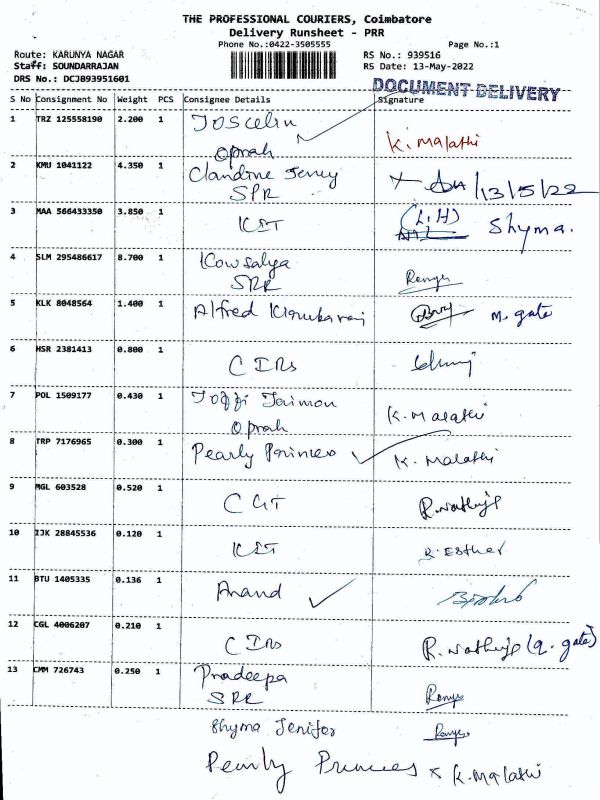 THE PROFESSIONAL COURIERS, Coimbatore
Delivery Runsheet - PRR
Phone No.:0422-3505555 Page No.:1
Route: KARUNYA NAGAR RS No.: 939516
Staff: SOUNDARRAJAN RS Date: 13-May-2022
DRS No.: DCJB93951601
DOCUMENT DELIVERY
S No Consignment No Weight PCS Consignee Details Signature
1 TRZ 125558190 2.200 1 Joscelin
Oprah K. Malathi
2 KMU 1041122 4.350 1 Claudine Jenny
SPR 13/5/22
3 MAA 566433350 3.850 1 (L.H)
Shyma.
4 SLM 295486617 8.700 1 Kowsalya
SRR Ramya
5 KLK 8048564 1.400 1 Alfred M. gate
6 HSR 2381413 0.800 1
7 POL 1509177 0.430 1 Jaimon
Oprah K. Malathi
8 TRP 7176965 0.300 1 Pearly Princess K. Malathi
9 MGL 603528 0.520 1
10 IJK 28845536 0.120 1 R. Esther
11 BTU 1405335 0.136 1 Anand
12 CGL 4006207 0.210 1
13 CMM 726743 0.250 1 Pradeepa
SRR Ramya
Shyma Jenifer Ramya
Pearly Princess x K. Malathi